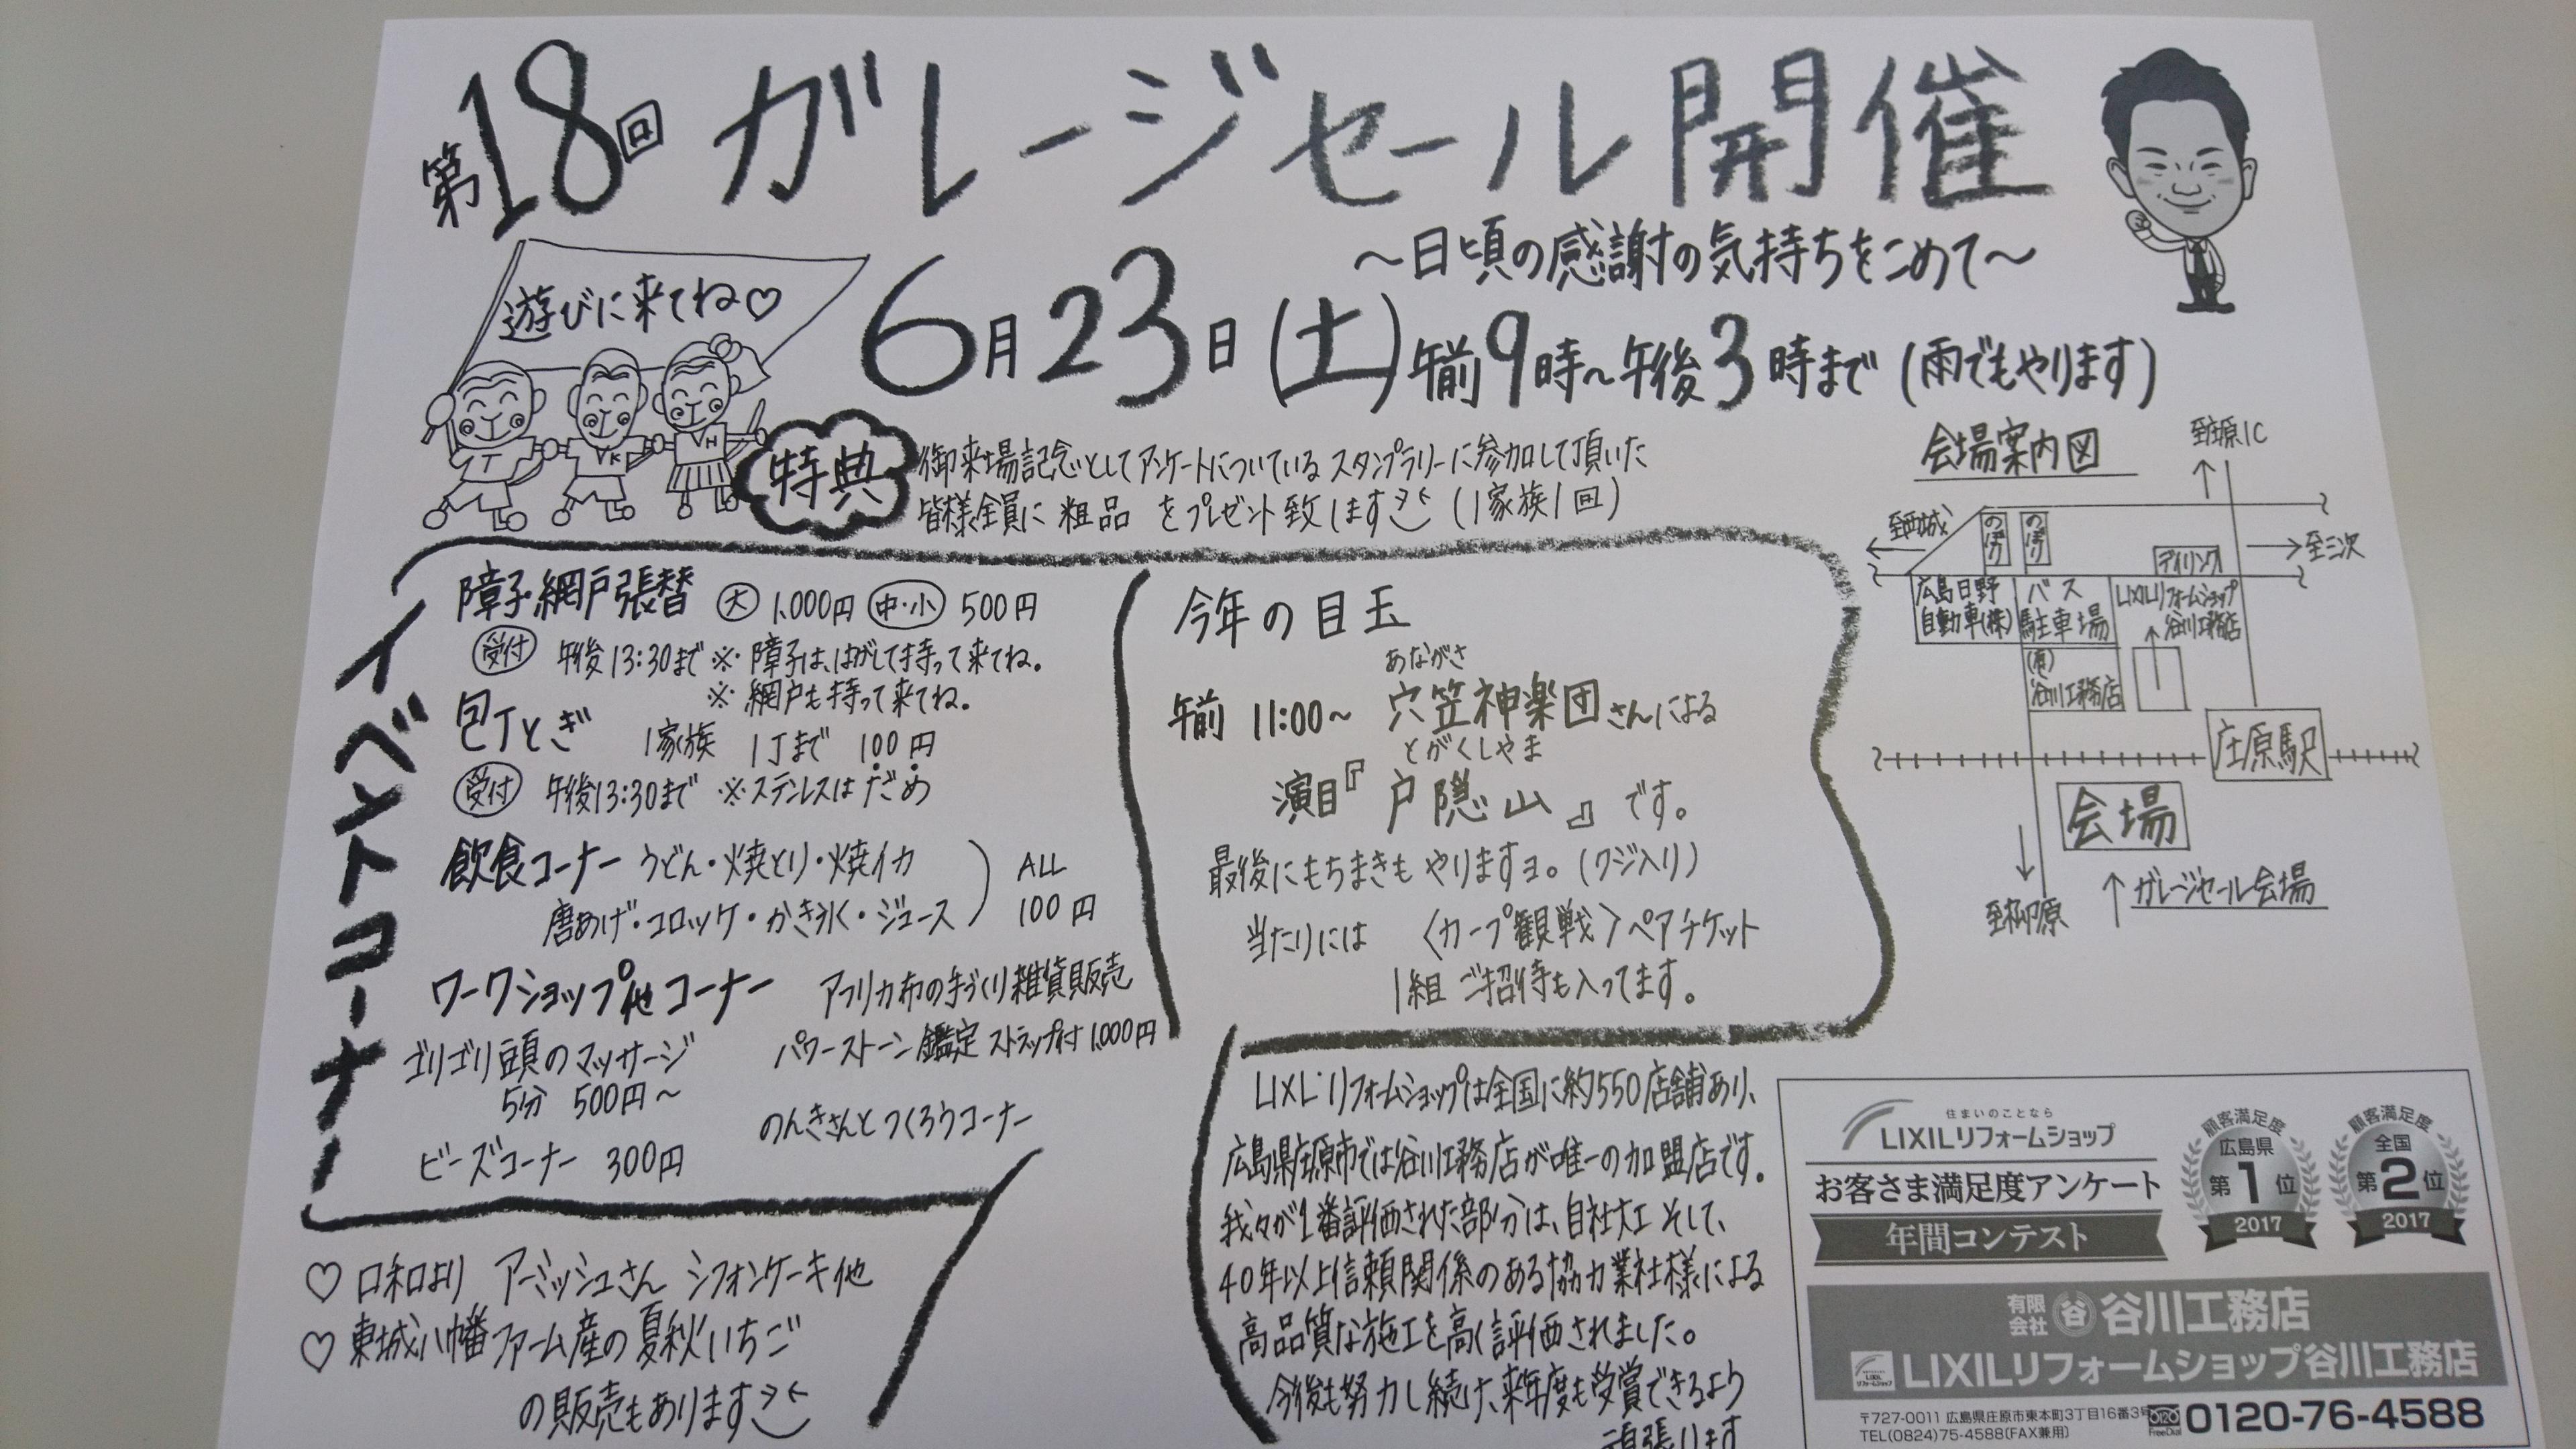 第18回 ガレージセール開催
〜日頃の感謝の気持ちをこめて〜
遊びに来てね♡
6月23日(土)午前9時〜午後3時まで(雨でもやります)
T
K
H
特典
御来場記念としてアンケートについているスタンプラリーに参加して頂いた
皆様全員に 粗品 をプレゼント致します (1家族1回)
イベントコーナー
障子・網戸張替 大 1,000円 中・小 500円
受付 午後13:30まで ※障子は、はがして持って来てね。
※網戸も持って来てね。
包丁とぎ 1家族 1丁まで 100円
受付 午後13:30まで ※ステンレスはだめ
飲食コーナー うどん・焼とり・焼イカ
唐あげ・コロッケ・かき氷・ジュース
ALL
100円
ワークショップ他コーナー アフリカ布の手づくり雑貨販売
ゴリゴリ豆頁のマッサージ
5分 500円〜
パワーストーン鑑定 ストラップ付 1,000円
ビーズコーナー 300円
のんきさんとつくろうコーナー
今年の目玉
あながさ
午前 11:00〜 穴笠神楽団さんによる
とがくしやま
演目『戸隠山』です。
最後にもちまきもやりますョ。(クジ入り)
当たりには 〈カープ観戦〉ペアチケット
1組 ご招待も入ってます。
会場案内図
至庄原IC
至西城
のぼり
のぼり
アイリンク
至三次
広島日野
自動車(株)
バス
駐車場
LIXILリフォームショップ
谷川工務店
(有)
谷川工務店
庄原駅
会場
ガレージセール会場
♡口和より アーミッシュさん シフォンケーキ他
♡東城八幡ファーム産の夏秋いちご
の販売もあります
LIXILリフォームショップは全国に約550店舗あり、
広島県庄原市では谷川工務店が唯一の加盟店です。
我々が1番評価された部分は、自社大工 そして、
40年以上信頼関係のある協力業社様による
高品質な施工を高く評価されました。
今後も努力し続け、来年度も受賞できるよう
頑張ります
住まいのことなら
LIXILリフォームショップ
お客さま満足度アンケート
年間コンテスト
顧客満足度
広島県
第1位
2017
顧客満足度
全国
第2位
2017
有限会社 谷 谷川工務店
LIXIL
リフォームショップ
LIXILリフォームショップ谷川工務店
〒727-0011 広島県庄原市東本町3丁目16番3号
TEL(0824)75-4588(FAX兼用)
0120
FreeDial
0120-76-4588